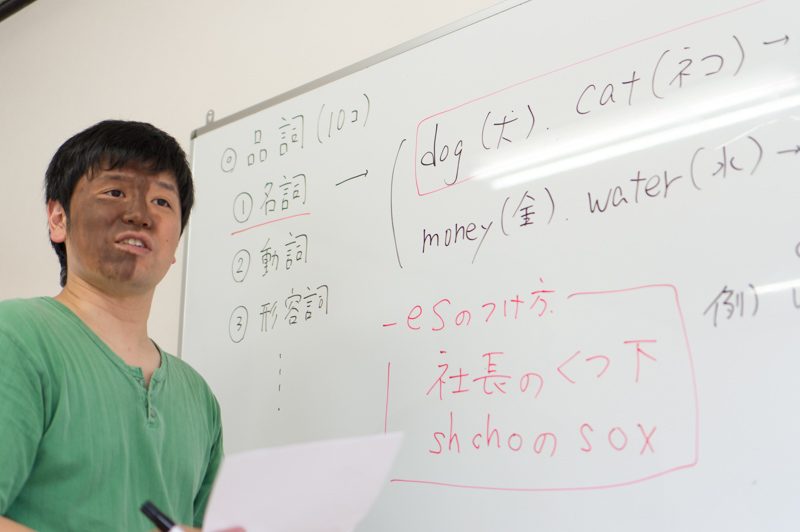 ⓪ 品詞(10コ)
① 名詞 → (dog(犬). cat(ネコ) →
money(金). water(水) →
② 動詞
③ 形容詞
⋮
-esのつけ方
社長のくつ下
shchoのsox
例)